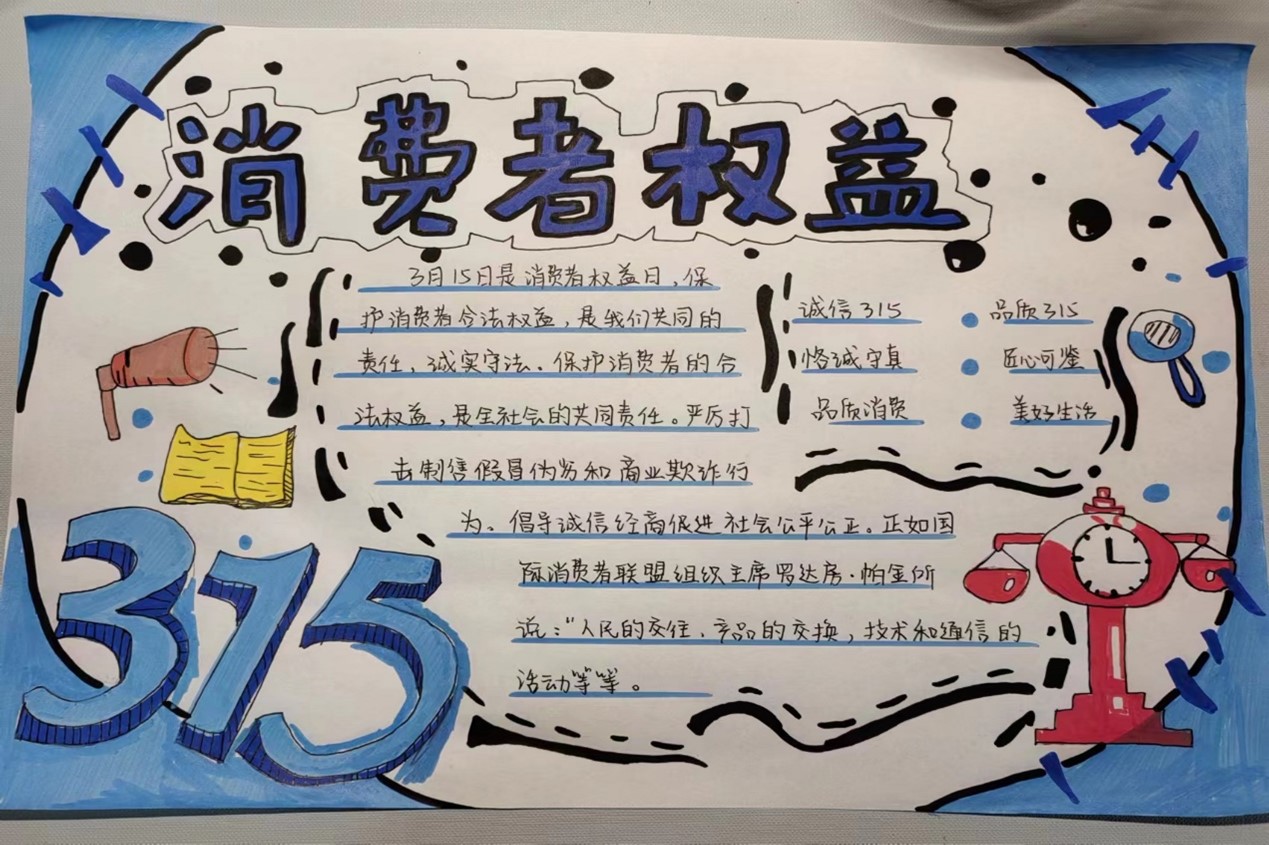 消费者权益
3月15日是消费者权益日，保
护消费者合法权益，是我们共同的
责任，诚实守法。保护消费者的合
法权益，是全社会的共同责任。严厉打
击制售假冒伪劣和商业欺诈行
为。倡导诚信经商促进社会公平公正。正如国
际消费者联盟组织主席罗达房·帕金所
说：“人民的交往、产品的交换，技术和通信的
活动等等。
诚信315
恪诚守真
品质消费
品质315
匠心可鉴
美好生活
315